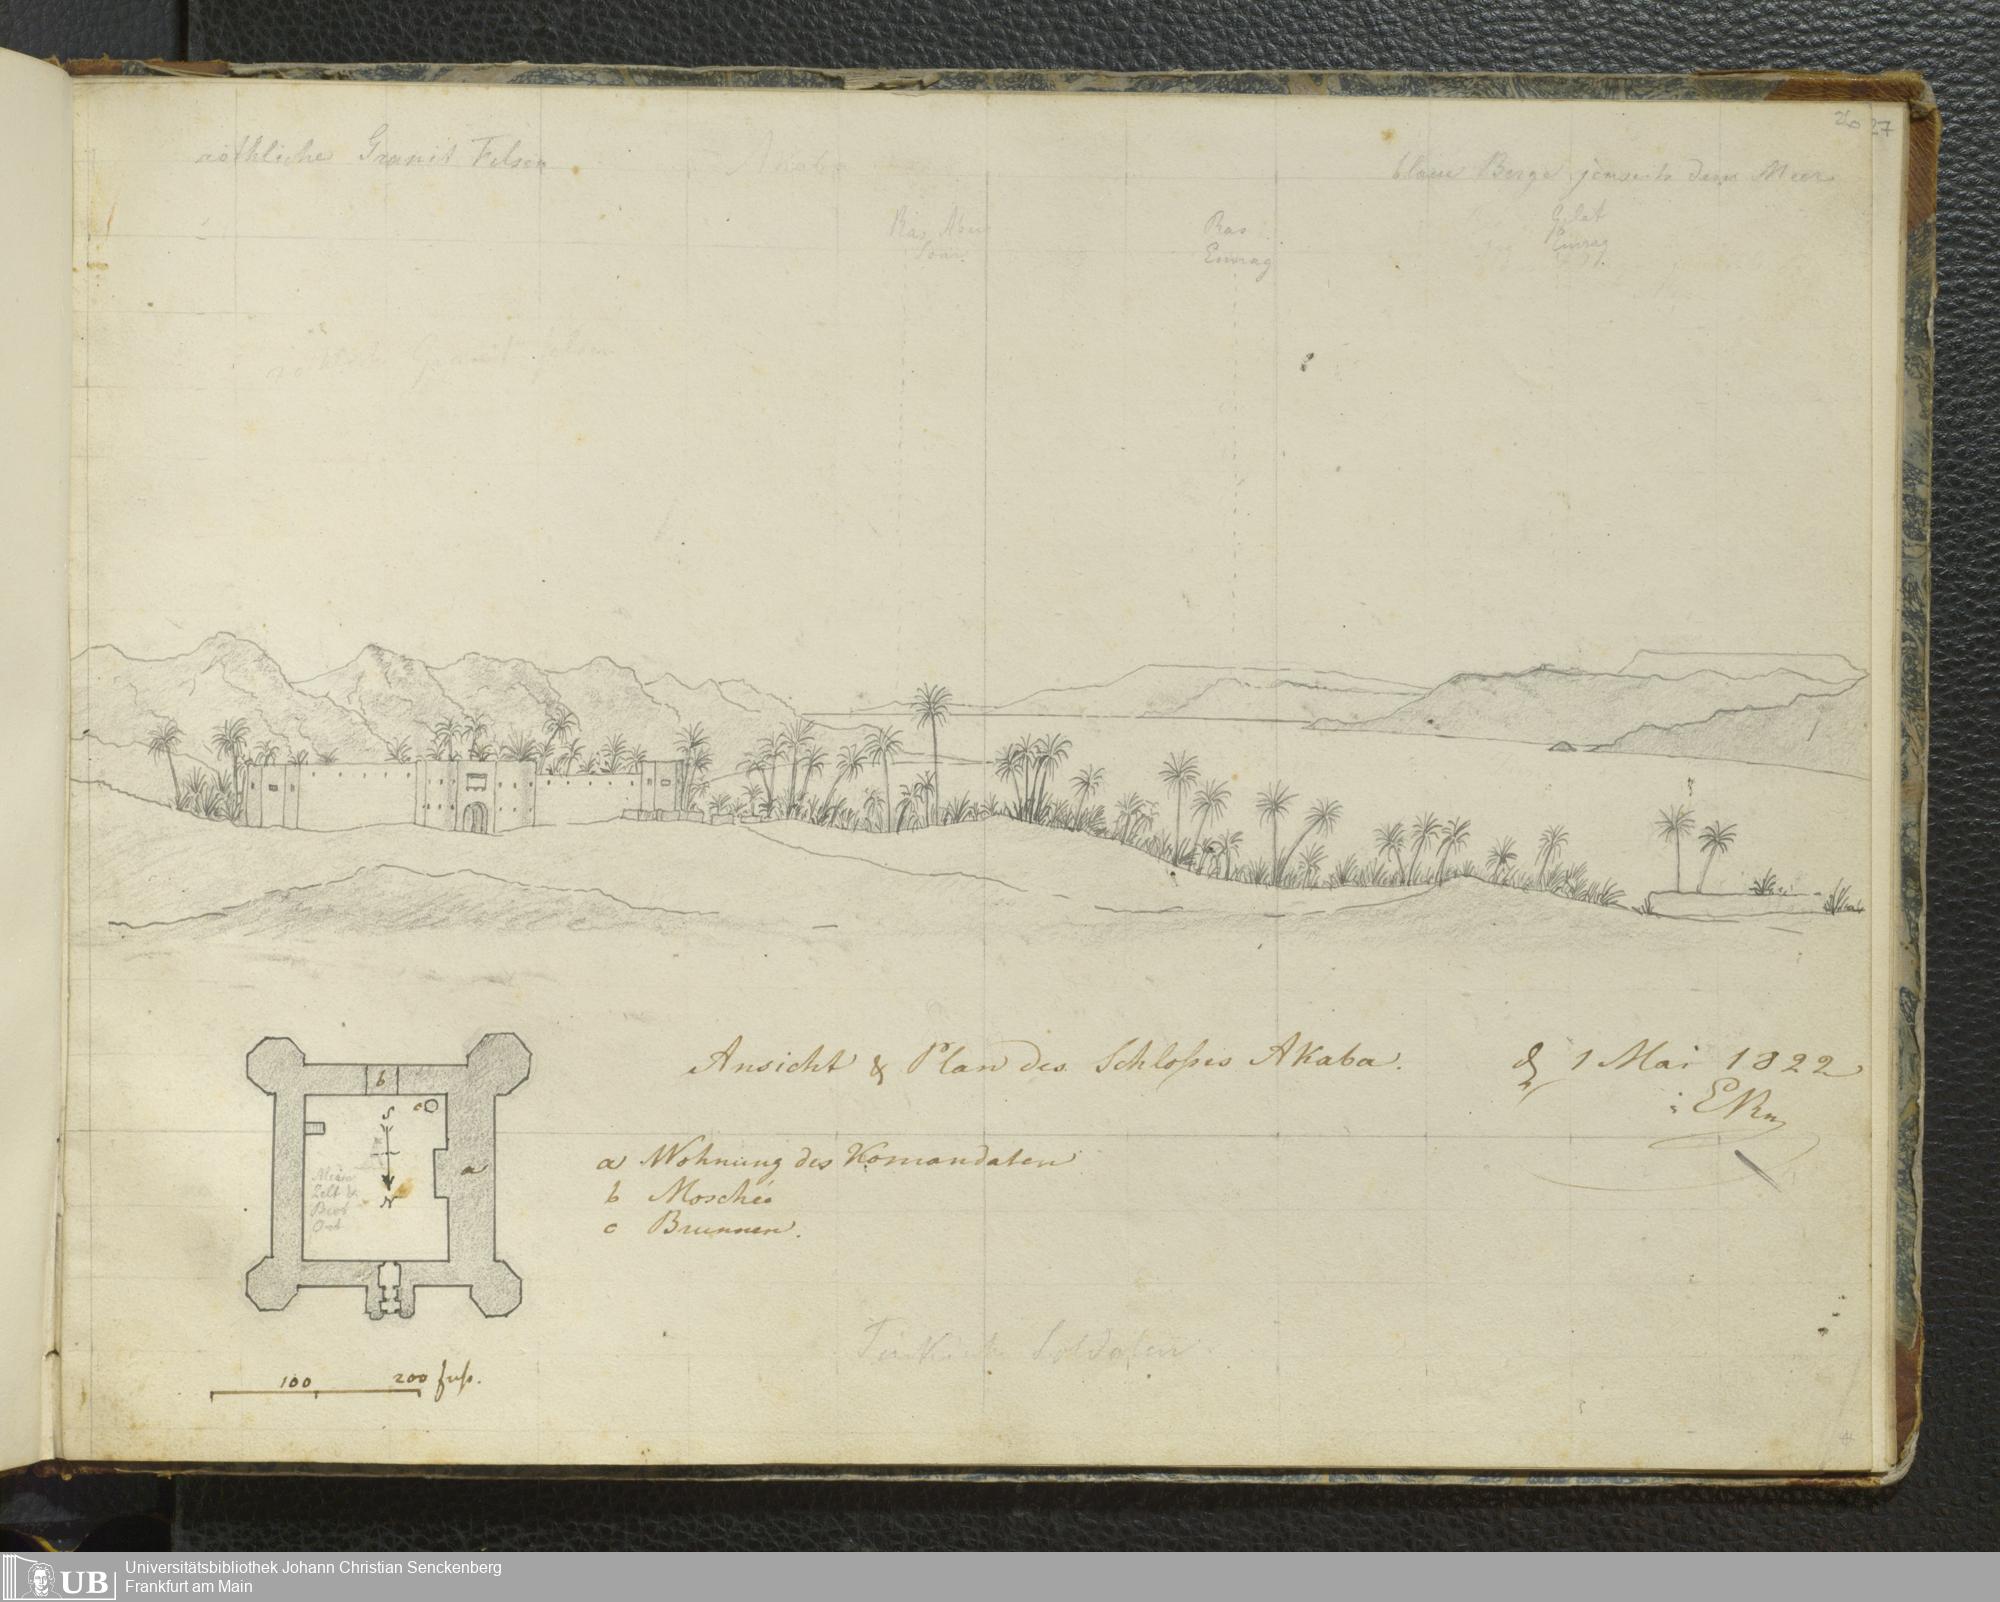 27
röthliche Granit Felsen
Akaba
blaue Berge jenseits dem Meer
Ras Abu
Ras
Emrag
Gelat
Emrag
röthliche Granit felsen
Ansicht & Plan des Schloßes Akaba. d 1 Mai 1822
: ERu
b
c
S
a
N
Mein
Zelt &
Ort
a Wohnung des Komandaten
b Moschée
c Brunnen.
Türkische Soldaten
100 200 fuß.
UB
Universitätsbibliothek Johann Christian Senckenberg
Frankfurt am Main